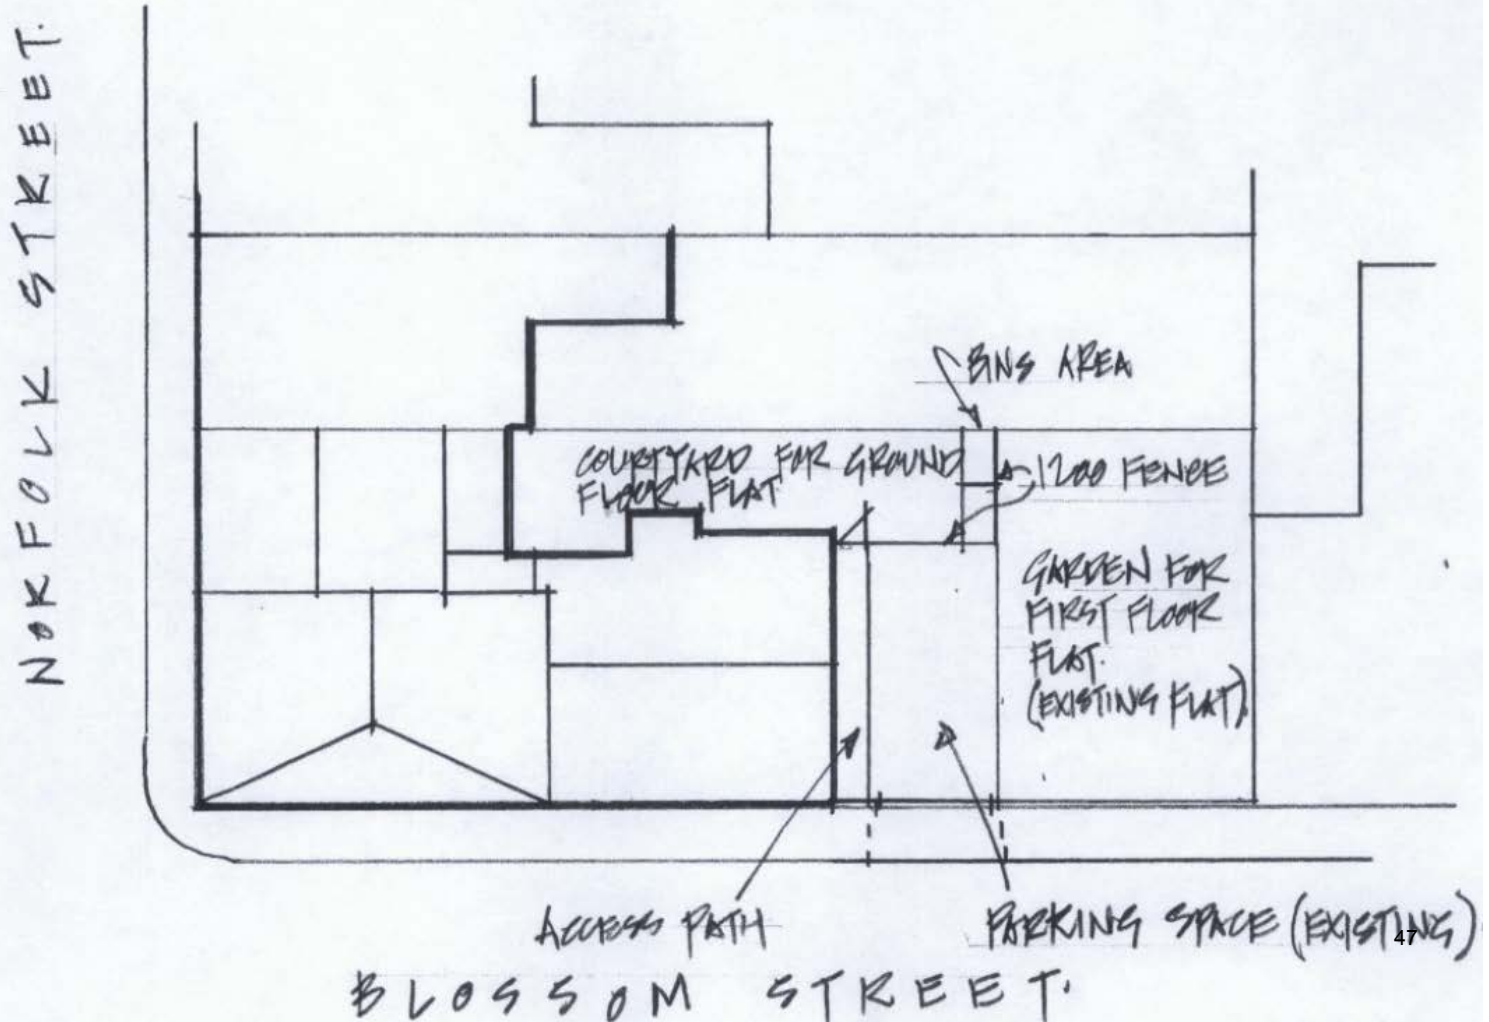 NORFOLK STREET.
BINS AREA
COURTYARD FOR GROUND
FLOOR FLAT
1200 FENCE
GARDEN FOR
FIRST FLOOR
FLAT.
(EXISTING FLAT)
ACCESS PATH
PARKING SPACE (EXISTING)
47
BLOSSOM STREET.